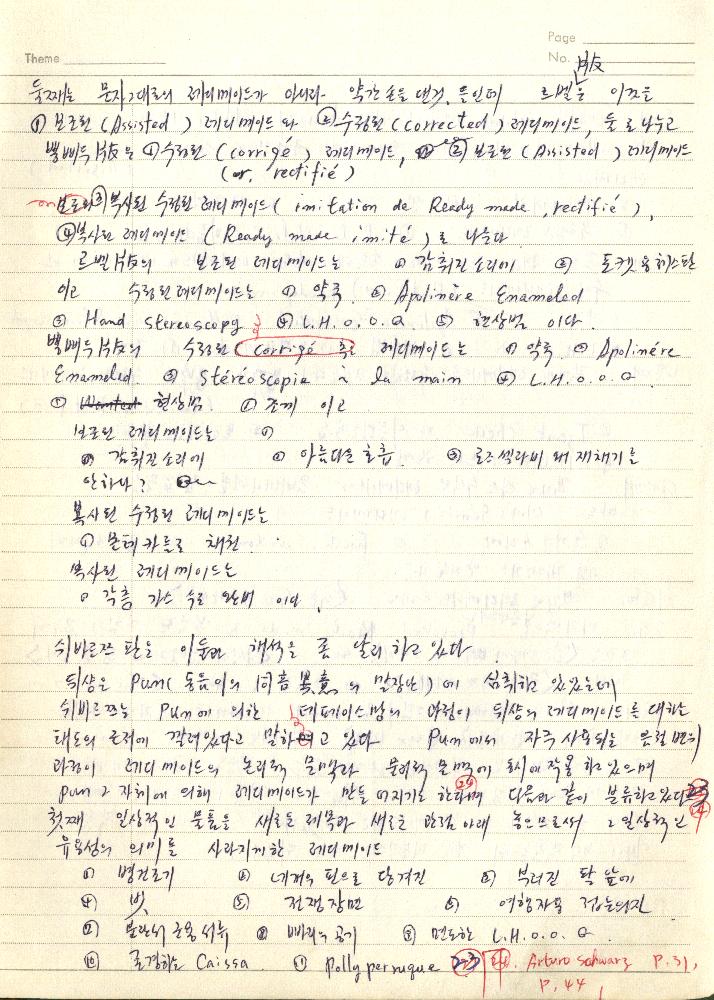 Page
Theme
No.
둘째는 문자 그대로의 레디메이드가 아니라 약간 손을 댄것. 들인데 르벨은 이것을
① 보조된 (Assisted) 레디메이드 와 ② 수정된 (corrected) 레디메이드, 둘로 나누고
① 수정된 (corrigé) 레디메이드, ② 보조된 (Assisted) 레디메이드
(or. rectifié)
③ 복사된 수정된 레디메이드 (imitation de Ready made, rectifié),
④ 복사된 레디메이드 (Ready made imité)로 나눈다
르벨 氏의 보조된 레디메이드는 ① 감춰진 소리에 ② 포켓용 체스판
이고 수정된 레디메이드는 ① 약국. ② Apolinère Enameled
③ Hand stereoscopy ④ L.H.O.O.Q ⑤ 현상범 이다.
수정된 (corrigé) 레디메이드는 ① 약국 ② Apolinére
Enameled ③ Stéréoscopie à la main ④ L.H.O.O.Q.
⑤ Wanted 현상범 ⑥ 조끼 이고
보조된 레디메이드는
① 감춰진 소리에 ② 아름다운 호흡. ③ 로즈 섹라비 왜 재채기를
안하나?
복사된 수정된 레디메이드는
① 몬테카를로 채권.
복사된 레디메이드는
① 각층 가스 수도 완비 이다.
쉬바르쯔 란을 이들과 해석을 좀 달리 하고 있다.
뒤샹은 Pun(동음이의 同音異意의 말장난)에 심취하고 있었는데
쉬바르쯔는 Pun에 의한 데페이스망의 과정이 뒤샹의 레디메이드를 대하는
태도의 초점에 깔려있다고 말하고 있다 Pun에서 자주 사용되는
과정이 레디메이드의 논리적 문맥과 물리적 문맥에 동시에 작용하고 있으며
pun 그 자체에 의해 레디메이드가 만들어지기도 한다며 다음과 같이 분류하고 있다 24
첫째 일상적인 물품을 새로운 제목과 새로운 관점 아래 놓으므로써 그 일상적인
유용성의 의미를 사라지게 한 레디메이드
① 병건조기 ② 네개의 핀으로 당겨진 ③ 부러진 팔 앞에
④ 빗 ⑤ 전쟁장면 ⑥ 여행자용 접는의자
⑦ 군용서류 ⑧ 빠리의 공기 ⑨ 면도한 L.H.O.O.Q.
⑩ Caissa ⑪ Polly perruque Arturo Schwarz P.31,
P.44,